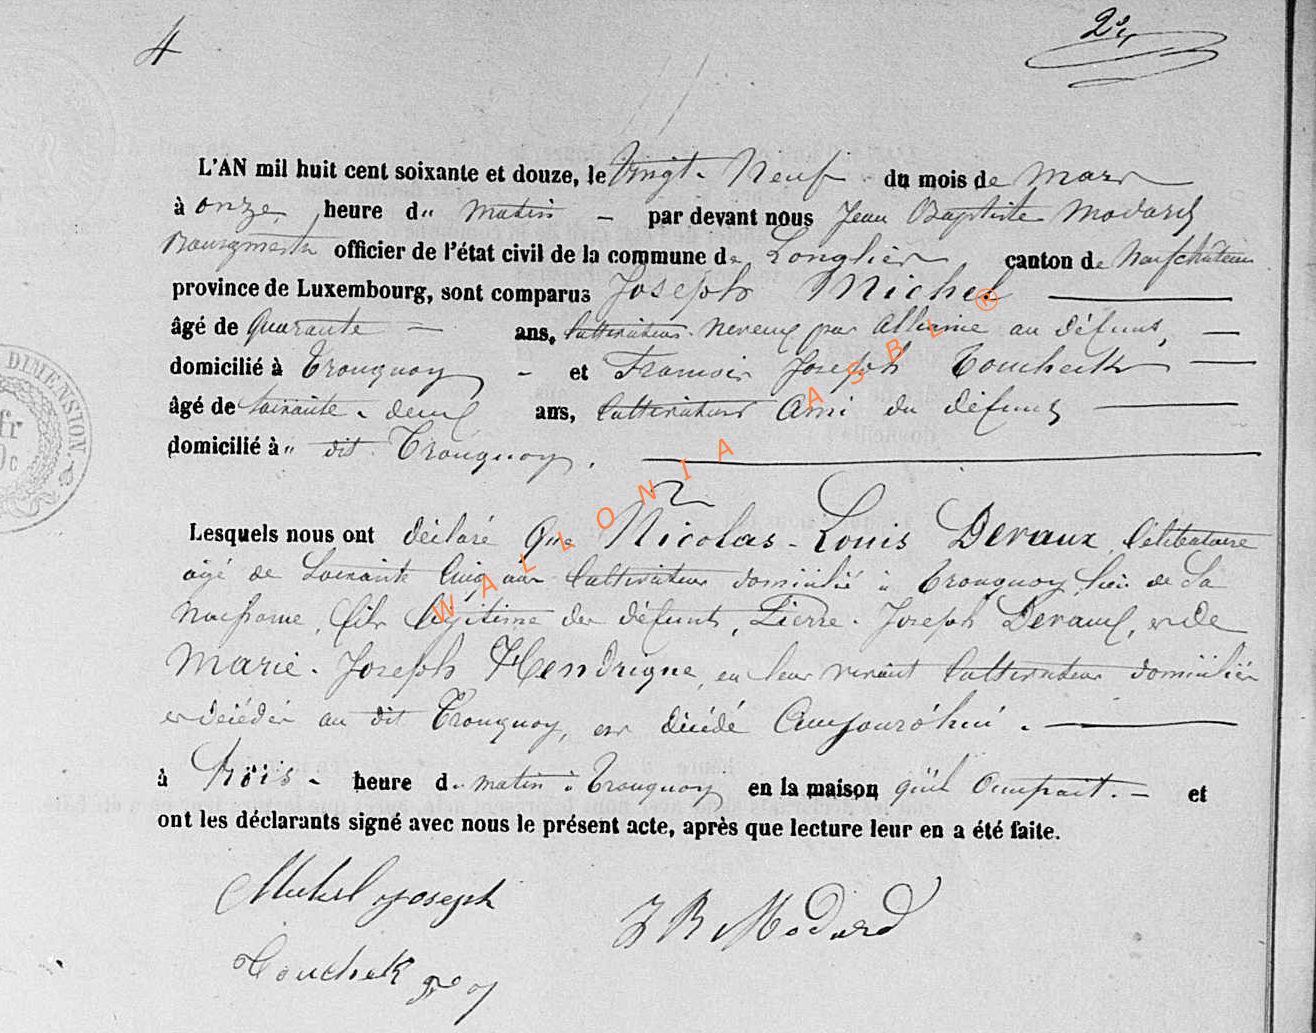 4
2e
L'AN mil huit cent soixante et douze, le Vingt-Neuf du mois de Mars
à onze heure du matin par devant nous Jean Baptiste Modard
Bourgmestre officier de l'état civil de la commune de Longlier, canton de Neufchâteau
province de Luxembourg, sont comparus Joseph Michel
âgé de Quarante ans, Cultivateur neveux par alliance au défunt,
domicilié à Tronquoy et François Joseph Toucheck
âgé de Soixante-deux ans, Cultivateur Ami du défunt
domicilié à dit Tronquoy.
Lesquels nous ont déclaré Que Nicolas-Louis Devaux, Célibataire
agé de Soixante Cinq ans Cultivateur domicilié à Tronquoy, lieu de Sa
naissance, fils légitime des défunts, Pierre-Joseph Devaux, et de
Marie-Joseph Hendrigne, en leur vivant Cultivateurs domiciliés
et décédés au dit Tronquoy, est décédé Aujourd'hui.
à trois heure du matin à Tronquoy en la maison qu'il Occupait. et
ont les déclarants signé avec nous le présent acte, après que lecture leur en a été faite.
Michel Joseph
J B Modard
Toucheck
DIMENSION
fr
0c
WALLONIA ASBL ®